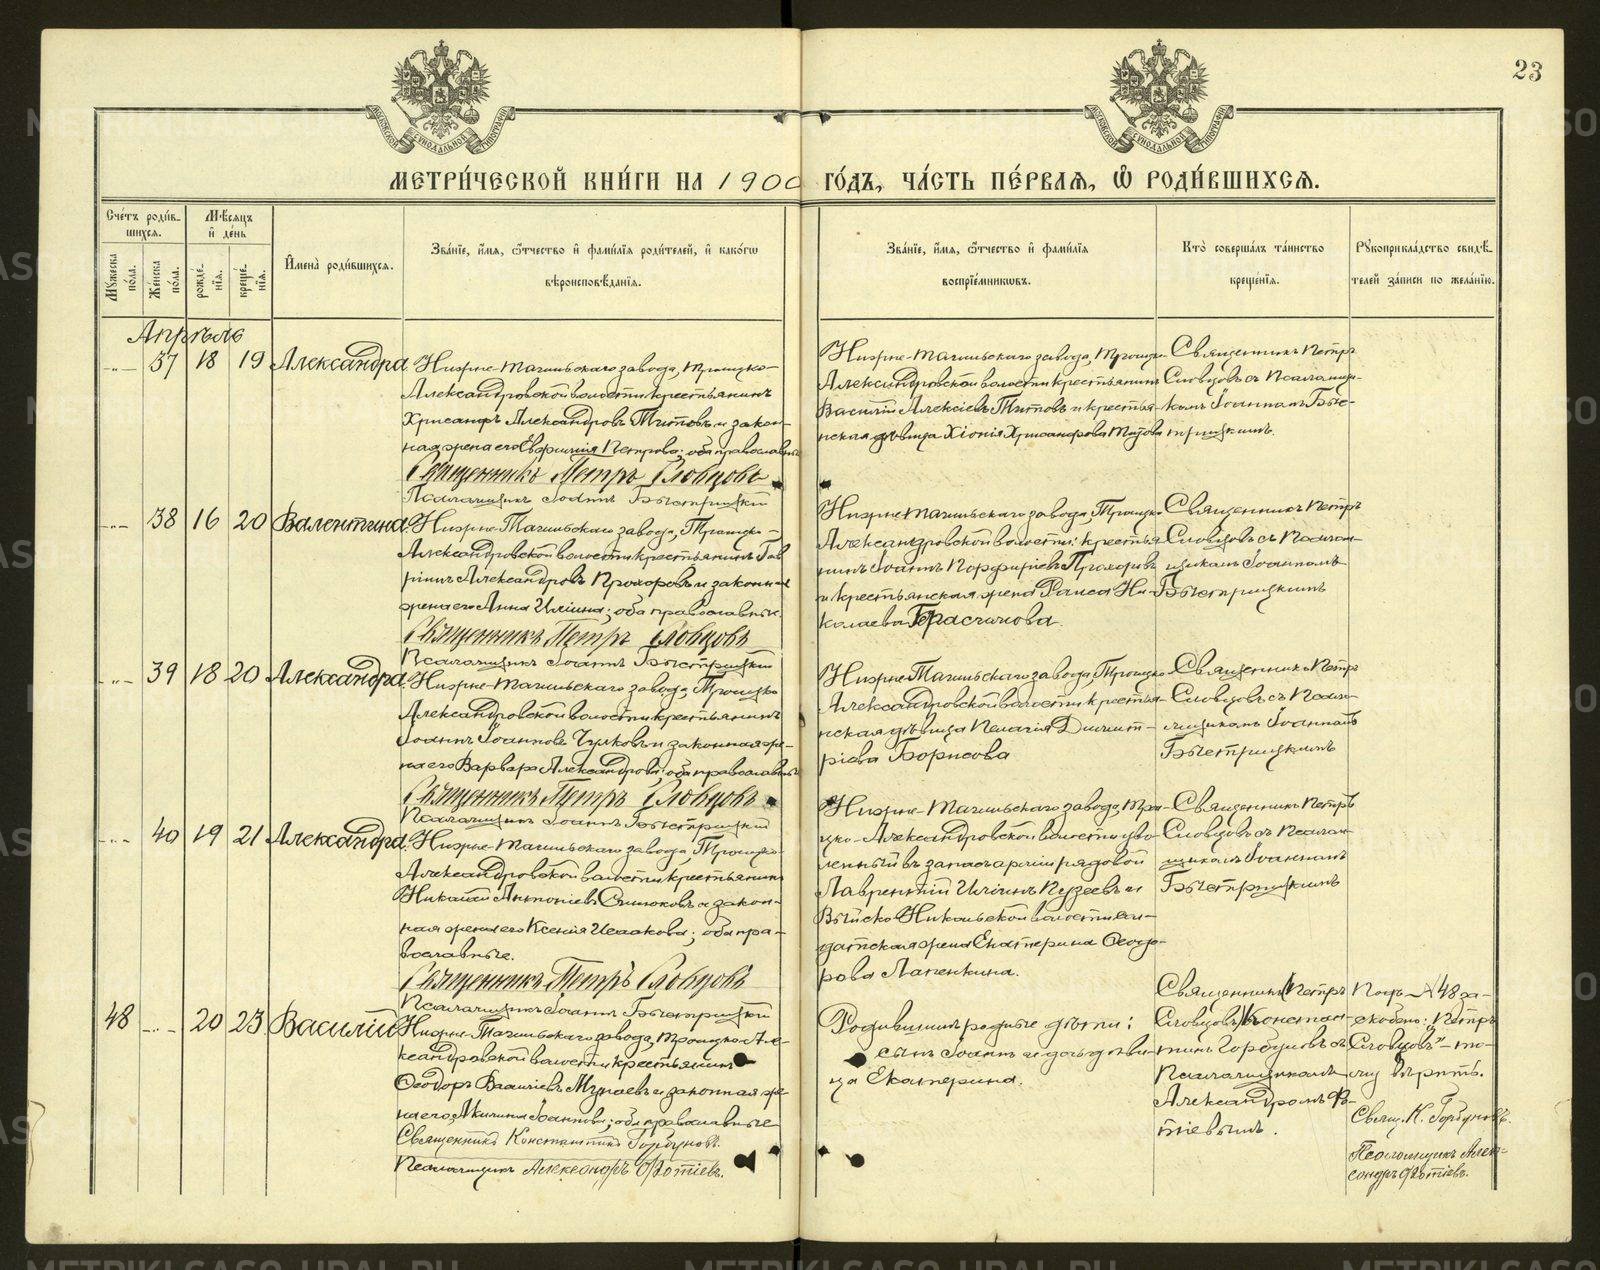 23
МЕТРИ́ЧЕСКОЙ КНИ́ГИ НА 1900 ГО́ДЪ, ЧА́СТЬ ПЕ́РВАѦ, Ѡ РОДИ́ВШИХСѦ.
Сче́тъ роди́в-
шихся.
Мѣ́сяцъ
и де́нь
Мꙋжеска по́ла.
Же́нска по́ла.
рожде́-
нїя.
креще́-
нїя.
Имена̀ роди́вшихся.
Зва́нїе, и́мя, ѻ́тчество и фами́лїя роди́телей, и како́гѡ
вѣроисповѣ́данїя.
Зва́нїе, и́мя, ѻ́тчество и фами́лїя
воспрїе́мникѡвъ.
Кто̀ соверша́лъ та́инство
креще́нїя.
Рꙋкоприкла́дство свидѣ́-
телей за́писи по жела́нїю.
Апрѣль
37 18 19 Александра
Нижне-Тагильскаго завода, Троицко-
Александровской волости крестьянинъ
Хрисанфъ Александровъ Титовъ и закон-
ная жена его Евфимія Петрова; оба православные
Священникъ Петръ Словцовъ
Псаломщикъ Іоаннъ Быстрицкій
Нижне-Тагильскаго завода, Троицко-
Александровской волости крестьянинъ
Василій Алексіевъ Титовъ и крестья-
нская дѣвица Хіонія Хрисанфова Титова
Священникъ Петръ
Словцовъ съ Псаломщи-
комъ Іоанномъ Бы-
стрицкимъ.
38 16 20 Валентина
Нижне-Тагильскаго завода, Троицко-
Александровской волости крестьянинъ Гав
ріилъ Александровъ Прохоровъ и законная
жена его Анна Иліина; оба православные.
Священникъ Петръ Словцовъ
Псаломщикъ Іоаннъ Быстрицкій
Нижне-Тагильскаго завода, Троицко
Александровской волости: крестья-
нинъ Іоаннъ Порфиріевъ Прохоровъ
и крестьянская жена Раиса Ни-
колаева Герасимова.
Священникъ Петръ
Словцовъ съ Псалом-
щикомъ Іоанномъ
Быстрицкимъ
39 18 20 Александра
Нижне-Тагильскаго завода, Троицко
Александровской волости крестьянинъ
Іоаннъ Іоанновъ Чулковъ и законная же-
на его Варвара Александрова; оба православные
Священникъ Петръ Словцовъ
Псаломщикъ Іоаннъ Быстрицкій
Нижне-Тагильскаго завода, Троицко
Александровской волости крестья-
нская дѣвица Пелагія Димит-
ріева Борисова
Священникъ Петръ
Словцовъ съ Псало-
мщикомъ Іоанномъ
Быстрицкимъ
40 19 21 Александра
Нижне-Тагильскаго завода, Троицко-
Александровской волости крестьянинъ
Николай Антоніевъ и закон-
ная жена его Ксенія Исаакова; оба пра-
вославные.
Священникъ Петръ Словцовъ
Псаломщикъ Іоаннъ Быстрицкій
Нижне-Тагильскаго завода, Трои-
цко-Александровской волости уво-
ленный въ запасъ арміи рядовой
Лаврентій Иліинъ Пузеевъ и
Выйско-Никольской волости сол-
датская жена Екатерина Ѳеодо-
рова Лапенкина.
Священникъ Петръ
Словцовъ съ Псалом-
щикомъ Іоанномъ
Быстрицкимъ
48 20 23 Василій
Нижне-Тагильскаго завода, Троицко-Але-
ксандровской волости крестьянинъ
Ѳеодоръ Василіевъ Мунаевъ и законная же-
на его Акилина Іоаннова; оба православные
Священникъ Константинъ Горбуновъ.
Псаломщикъ Александръ Фотіевъ.
Родившихъ родные дѣти:
сынъ Іоаннъ и дочь дѣви-
ца Екатерина.
Священникъ (Петръ
Словцовъ) Констан-
тинъ Горбуновъ съ
Псаломщикомъ
Александромъ Фо-
тіевымъ.
Подъ № 48 за-
скобено: "Петръ
Словцовъ" – то-
му вѣрить.
Свящ. К. Горбуновъ.
Псаломщикъ Алек-
сандръ Фотіевъ.